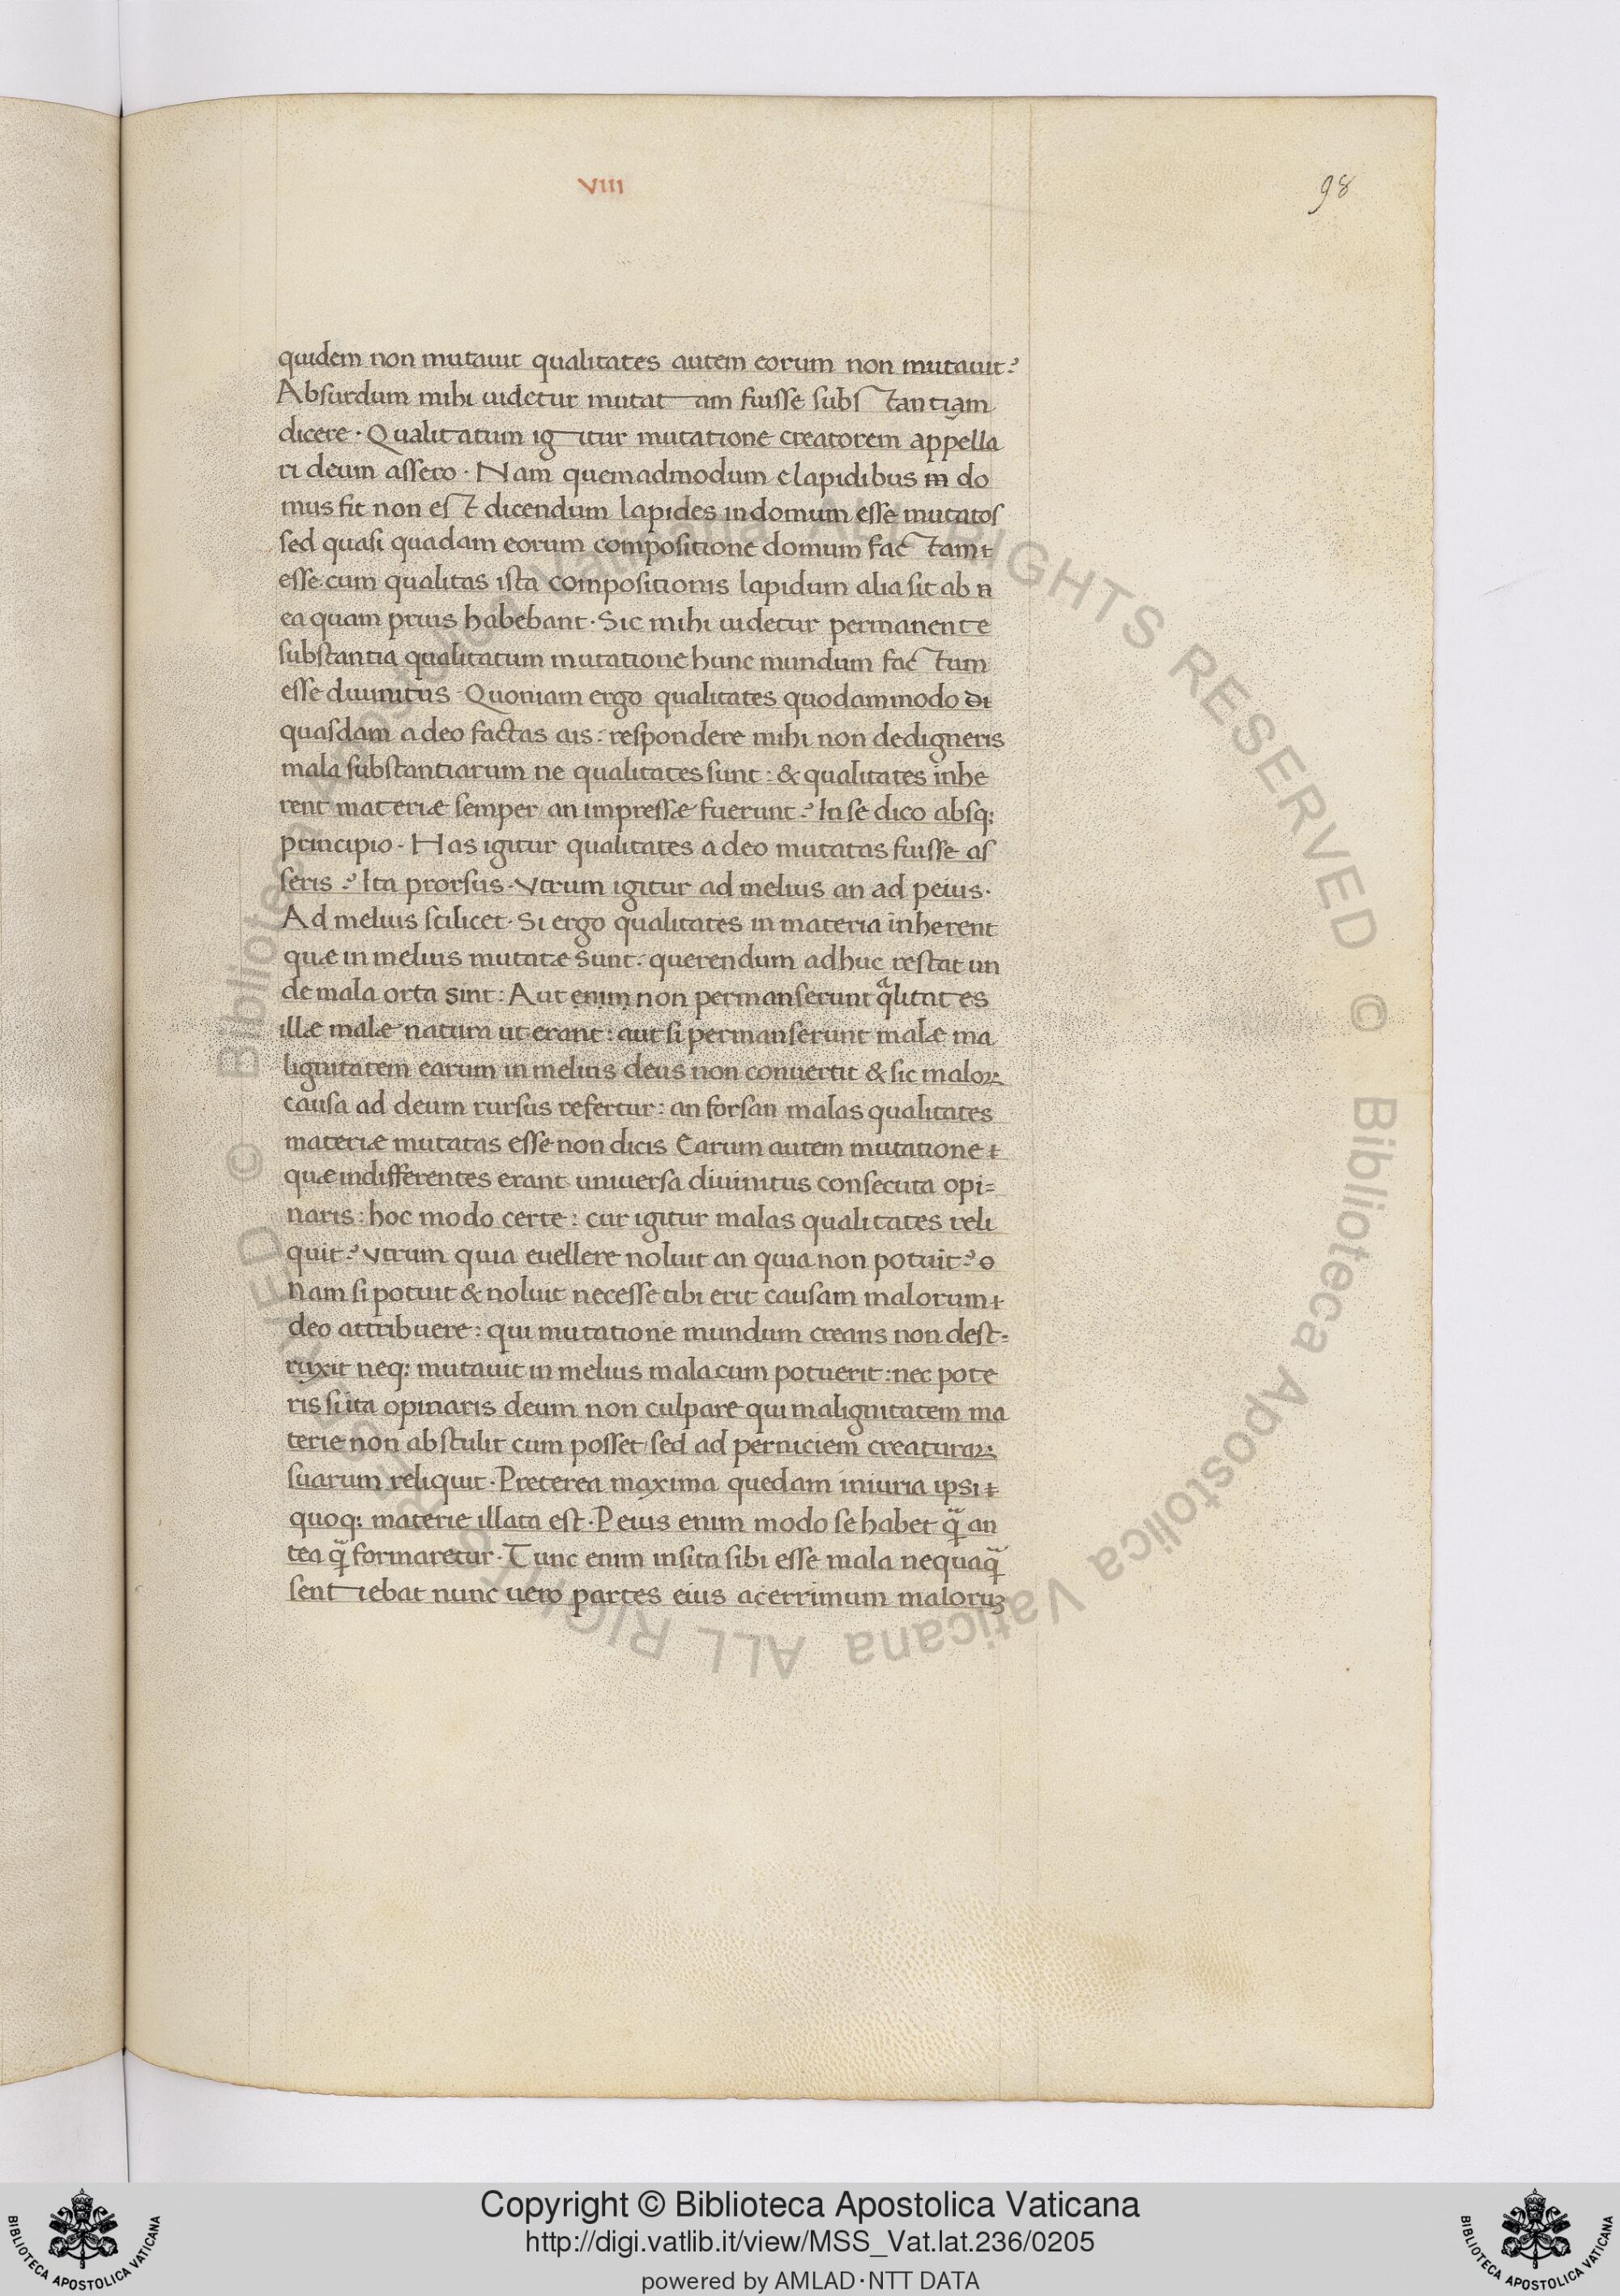 VIII
98
quidem non mutauit qualitates autem eorum non mutauit?
Absurdum mihi uidetur mutatam fuisse substantiam
dicere · Qualitatum igitur mutatione creatorem appella
ri deum assero · Nam quemadmodum e lapidibus m do
mus fit non est dicendum lapides in domum esse mutatos
sed quasi quadam eorum compositione domum factam
esse cum qualitas ista compositionis lapidum alia sit ab n
ea quam prius habebant · Sic mihi uidetur permanente
substantia qualitatum mutatione hunc mundum factum
esse diuinitus · Quoniam ergo qualitates quodammodo di
quasdam a deo factas ais: respondere mihi non dedigneris
mala substantiarum ne qualitates sunt: & qualitates inhe
rent materiæ semper / an impressæ fuerunt? In se dico absq;
principio · Has igitur qualitates a deo mutatas fuisse as
seris? Ita prorsus · Vtrum igitur ad melius an ad peius ·
Ad melius scilicet · Si ergo qualitates in materia inherent
quæ in melius mutatæ sunt: querendum adhuc restat un
de mala orta sint: Aut enim non permanserunt qͣlitates
illæ malæ natura ut erant: aut si permanserunt malæ ma
lignitatem earum in melius deus non conuertit & sic maloꝝ
causa ad deum rursus refertur: an forsan malas qualitates
materiæ mutatas esse non dicis Earum autem mutatione
quæ indifferentes erant uniuersa diuinitus consecuta opi=
naris: hoc modo certe: cur igitur malas qualitates reli
quit? Vtrum quia euellere noluit an quia non potuit? o
Nam si potuit & noluit necesse tibi erit causam malorum
deo attribuere: qui mutatione mundum creans non dest-
ruxit neq; mutauit in melius mala cum potuerit: nec pote
ris si ita opinaris deum non culpare qui malignitatem ma
terie non abstulit cum posset / sed ad perniciem creaturaꝝ
suarum reliquit · Preterea maxima quedam iniuria ipsi
quoq; materie illata est · Peius enim modo se habet qᷓ an
tea qᷓ formaretur · Tunc enim insita sibi esse mala nequaqᷓ
sentiebat nunc uero partes eius acerrimum maloruꝫ
© Biblioteca Apostolica Vaticana ALL RIGHTS RESERVED © Biblioteca Apostolica Vaticana ALL RIGHTS RESERVED
Copyright © Biblioteca Apostolica Vaticana
http://digi.vatlib.it/view/MSS_Vat.lat.236/0205
powered by AMLAD·NTT DATA
BIBLIOTECA APOSTOLICA VATICANA
BIBLIOTECA APOSTOLICA VATICANA